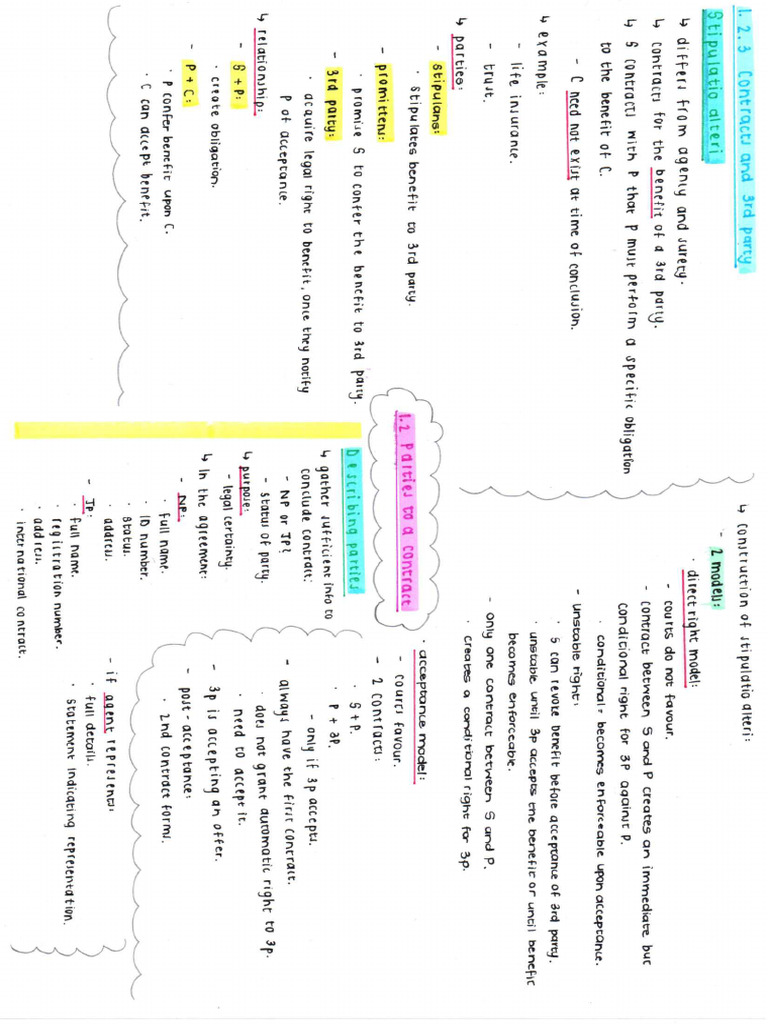 1.2.3 Contracts and 3rd party
Stipulatio alteri
↳ differs from agency and surety.
↳ contracts for the benefit of a 3rd party.
↳ S contracts with P that P must perform a specific obligation
to the benefit of C.
- C need not exist at time of conclusion.
↳ example:
- life insurance.
- trust.
↳ parties:
- stipulans:
· stipulates benefit to 3rd party.
- promittens:
· promise S to confer the benefit to 3rd party.
- 3rd party:
· acquire legal right to benefit, once they notify
P of acceptance.
↳ relationship:
- S + P:
· create obligation.
- P + C:
· P confer benefit upon C.
· C can accept benefit.
↳ construction of stipulatio alteri:
- 2 models:
· direct right model:
- courts do not favour.
- contract between S and P creates an immediate but
conditional right for 3P against P.
· conditional = becomes enforceable upon acceptance.
- unstable right:
· S can revoke benefit before acceptance of 3rd party.
· unstable until 3p accepts the benefit or until benefit
becomes enforceable.
- only one contract between S and P.
· creates a conditional right for 3p.
· acceptance model:
- courts favour.
- 2 contracts:
· S + P.
· P + 3P.
- only if 3p accepts.
- always have the first contract.
· does not grant automatic right to 3p.
· need to accept it.
- 3p is accepting an offer.
- post-acceptance:
· 2nd contract forms.
1.2 Parties to a contract
Describing parties
↳ gather sufficient info to
conclude contract:
- NP or JP?
- status of party.
↳ purpose:
- legal certainty.
↳ In the agreement:
- NP:
· full name.
· ID number.
· status.
· address.
- JP:
· full name.
· registration number.
· address.
· international contract.
- if agent represents:
· full details.
· statement indicating representation.